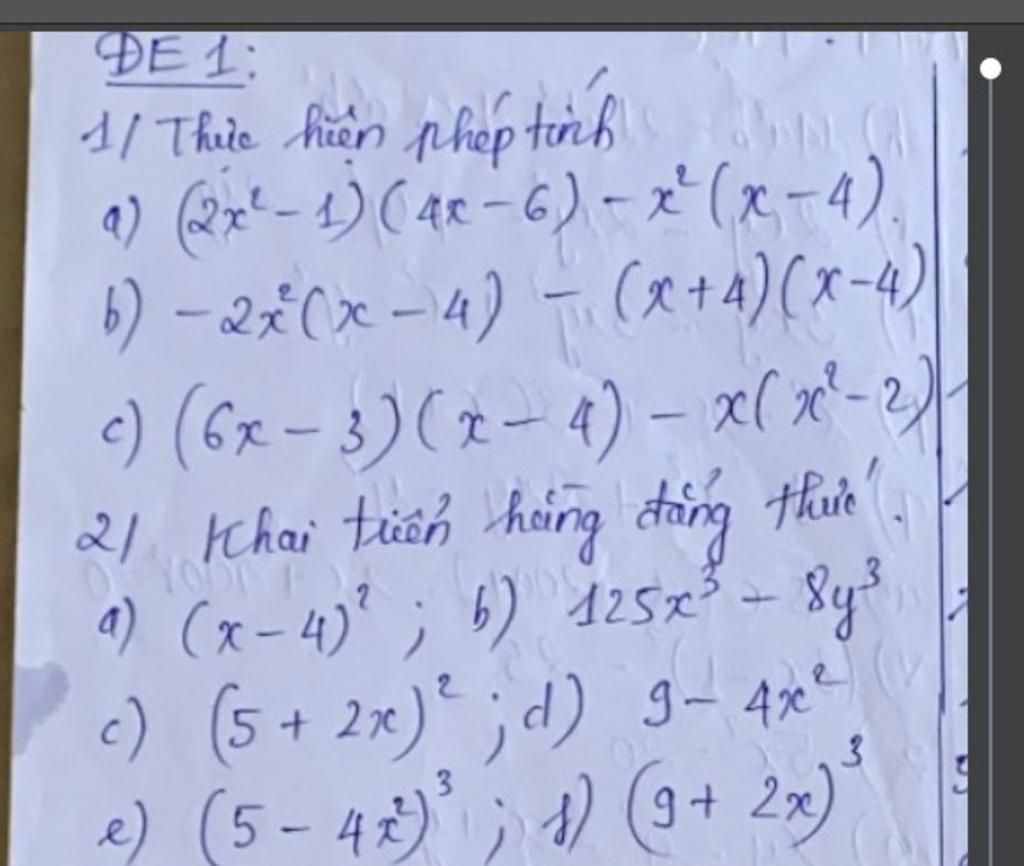 ĐE 1:
1/ Thực hiện phép tính
a) (2x² - 1)(4x - 6) - x²(x - 4).
b) - 2x²(x - 4) - (x + 4)(x - 4)
c) (6x - 3)(x - 4) - x(x² - 2)
2/ Khai triển hằng đẳng thức.
a) (x - 4)² ; b) 125x³ - 8y³
c) (5 + 2x)² ; d) 9 - 4x²
e) (5 - 4x²)³ ; f) (9 + 2x)³